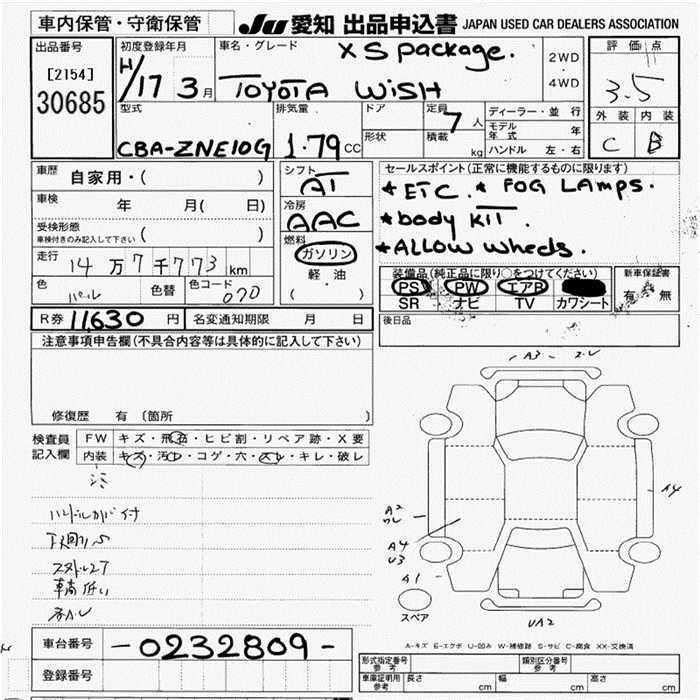 車内保管・守衛保管
JU 愛知 出品申込書 JAPAN USED CAR DEALERS ASSOCIATION
出品番号
[2154]
30685
初度登録年月
H/17 3月
車名・グレード
XS package.
TOYOTA WiSH
2WD
4WD
評価点
3.5
外装 内装
C B
型式
CBA-ZNE10G
排気量
1.79 CC
ドア
形状
定員
7人
積載
kg
ディーラー・並行
モデル年式 年
ハンドル 左・右
車歴
自家用・( )
車検 年 月( 日)
受検形態
車検付きのみ記入して下さい ( )
走行
14万7千773km
色
パール
色替
色コード
070
シフト
AT
冷房
AAC
燃料
ガソリン
軽・油
( )
セールスポイント(正常に機能するものに限ります)
* ETC. * FOG LAMPS.
* body KIT.
* ALLOW wheels.
装備品(純正品に限り○をつけてください)
PS PW エアB
SR ナビ TV カワシート
新車保証書
有 無
後日品
R券 11,630 円 名変通知期限 月 日
注意事項申告欄(不具合内容等は具体的に記入して下さい)
修復歴 有 〔箇所 〕
検査員記入欄
FW キズ・飛石・ヒビ割・リペア跡・X要
内装 キズ・汚レ・コゲ・穴・スレ・キレ・破レ
ハンドルカバー付
車高低い
A3
A2
A4
A4
U3
A1
スペア
UA2
A-キズ E-エクボ U-凹み W-補修跡 S-サビ C-腐食 XX-交換済
車台番号 -0232809-
登録番号
形式指定番号 参考
類別区分番号 参考
車庫証明用 参考
長さ cm 幅 cm 高さ cm